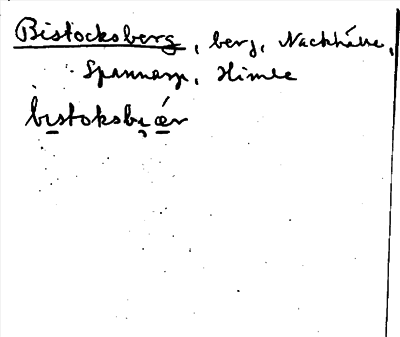 Bistocksberg, berg, Nackhälle,
Spannarp, Himle
bistoksbær